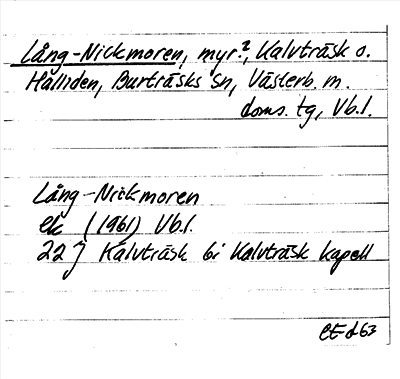 Lång-Nickmoren, myr?, Kalvträsk o.
Hälliden, Burträsks sn, Västerb. m.
doms. tg, Vb.l.
Lång-Nickmoren
ek (1961) Vb.l.
22 J Kalvträsk bi Kalvträsk kapell